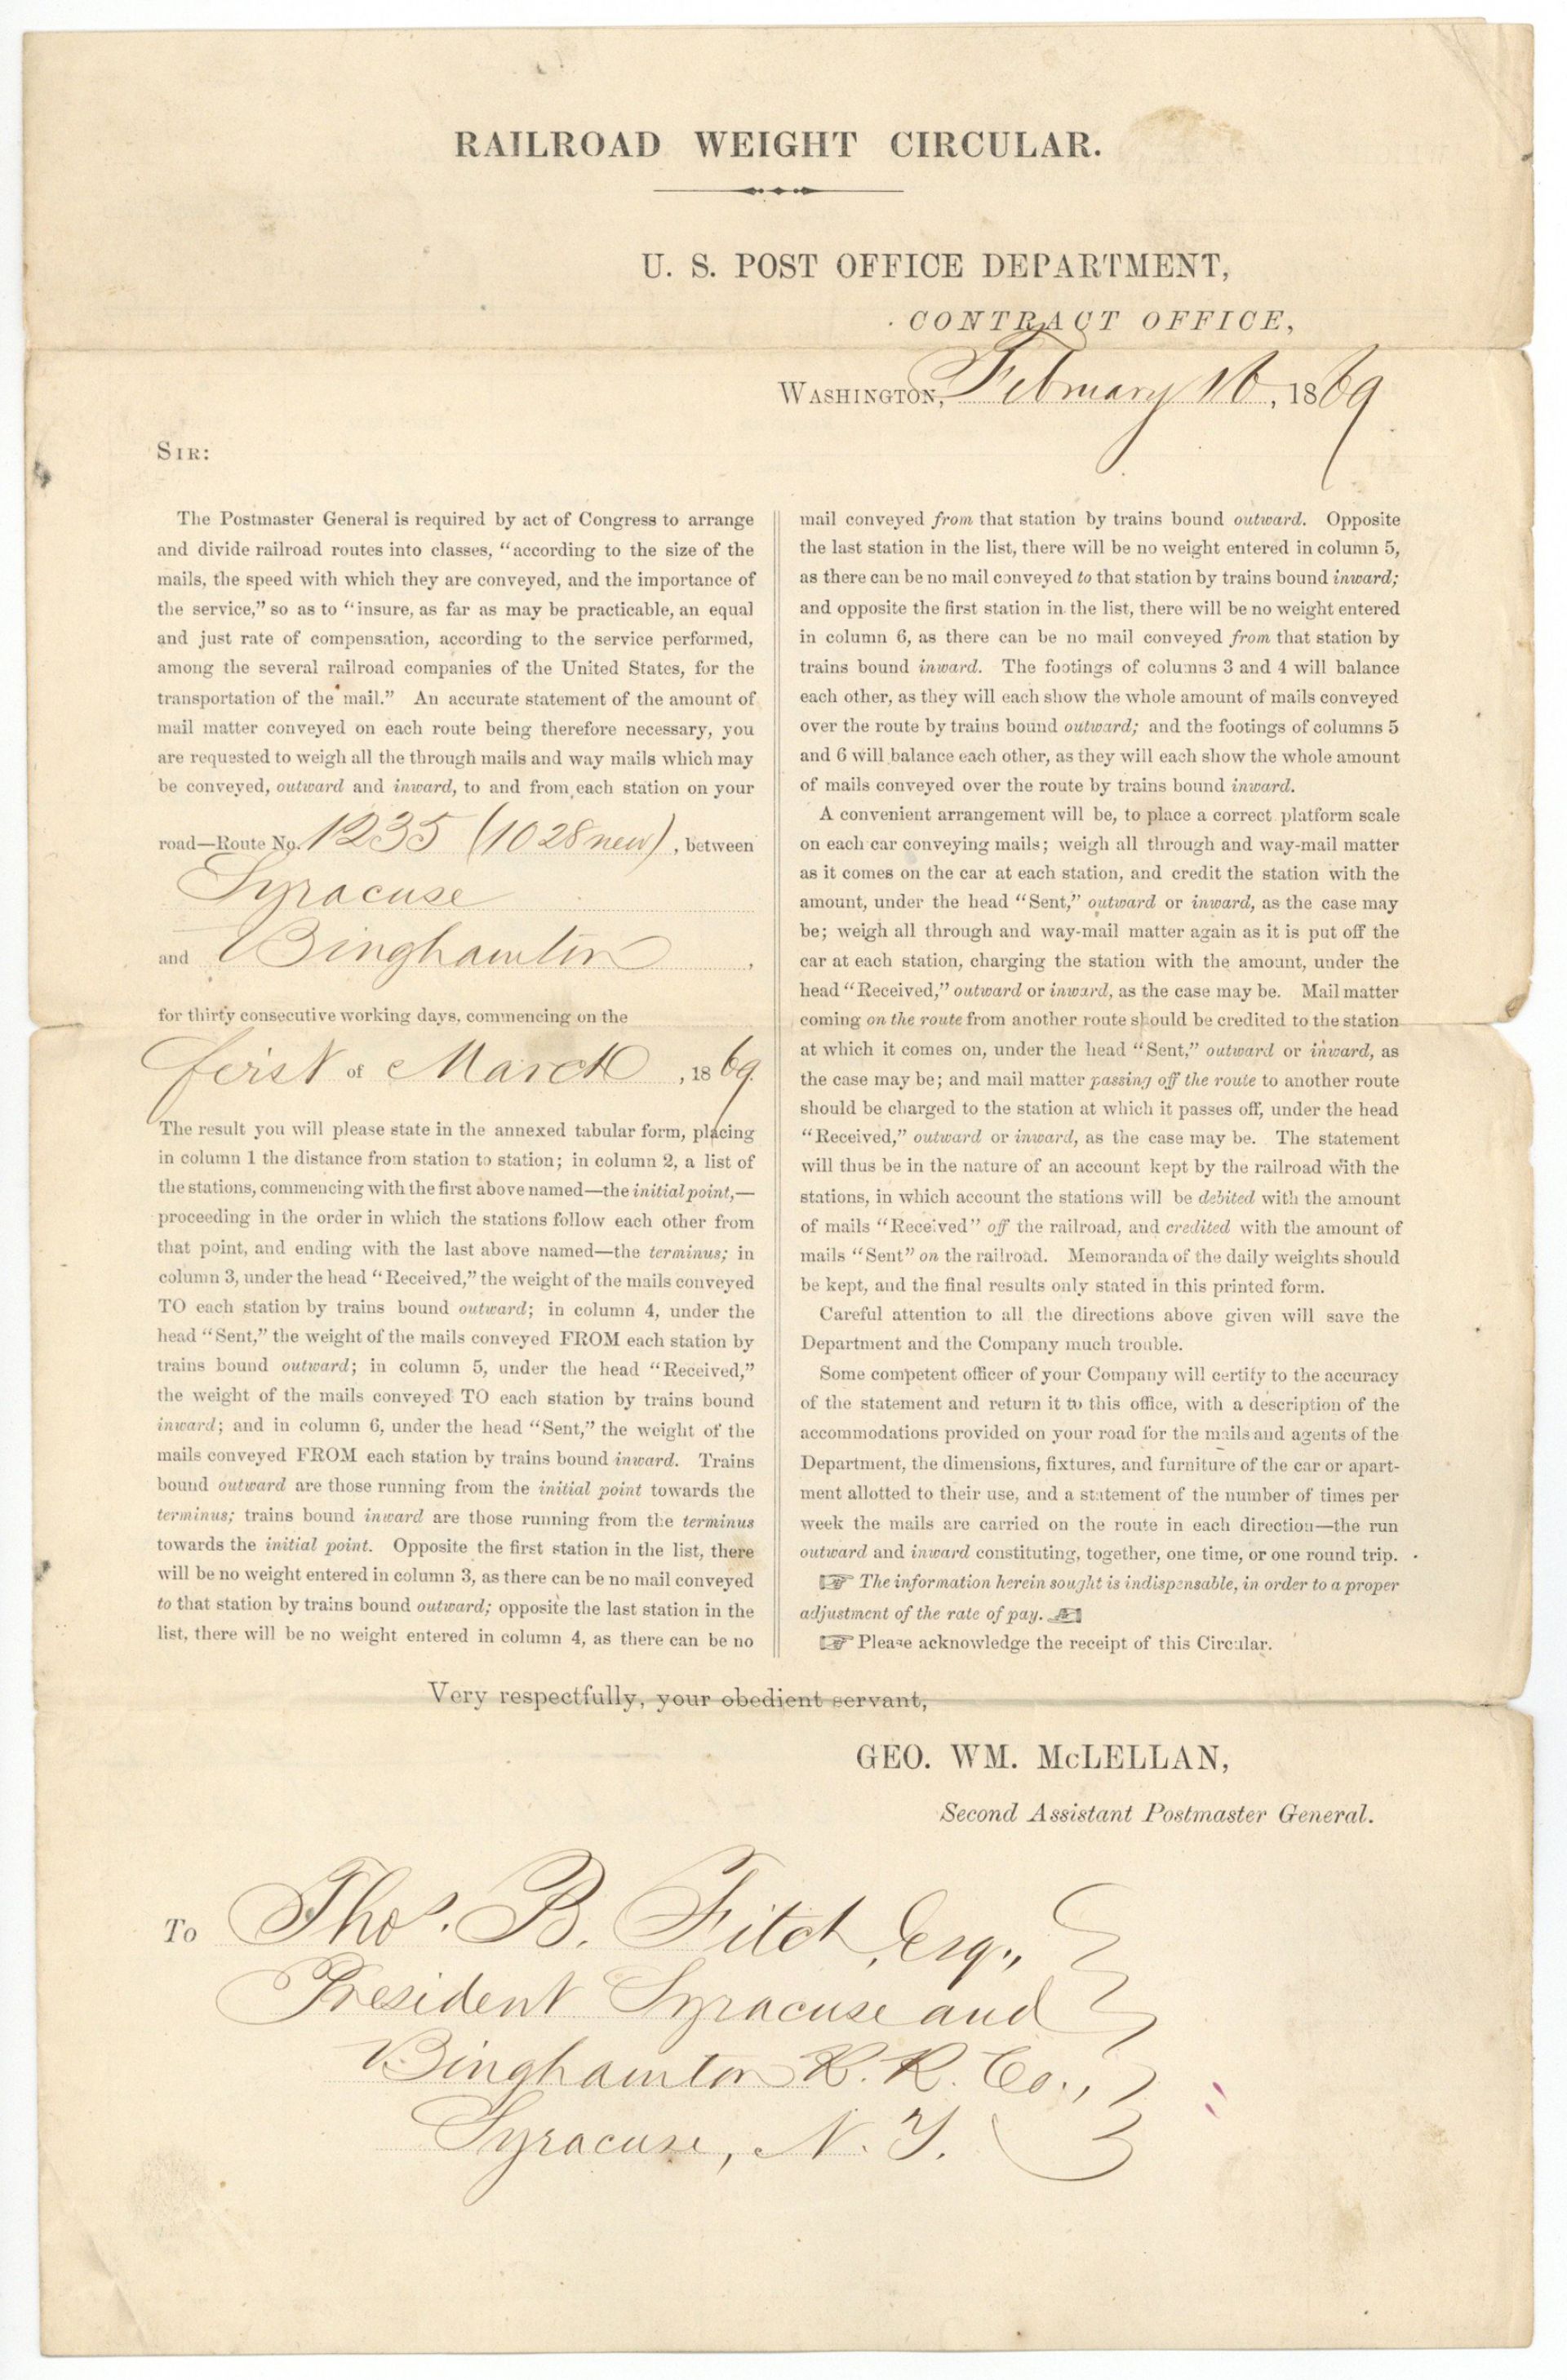 RAILROAD WEIGHT CIRCULAR.
U. S. POST OFFICE DEPARTMENT,
CONTRACT OFFICE,
WASHINGTON, February 16, 1869
SIR:
The Postmaster General is required by act of Congress to arrange
and divide railroad routes into classes, "according to the size of the
mails, the speed with which they are conveyed, and the importance of
the service," so as to "insure, as far as may be practicable, an equal
and just rate of compensation, according to the service performed,
among the several railroad companies of the United States, for the
transportation of the mail." An accurate statement of the amount of
mail matter conveyed on each route being therefore necessary, you
are requested to weigh all the through mails and way mails which may
be conveyed, outward and inward, to and from each station on your
road—Route No. 1235 (1028 new), between
Syracuse
and Binghamton,
for thirty consecutive working days, commencing on the
first of March, 1869.
The result you will please state in the annexed tabular form, placing
in column 1 the distance from station to station; in column 2, a list of
the stations, commencing with the first above named—the initial point,—
proceeding in the order in which the stations follow each other from
that point, and ending with the last above named—the terminus; in
column 3, under the head "Received," the weight of the mails conveyed
TO each station by trains bound outward; in column 4, under the
head "Sent," the weight of the mails conveyed FROM each station by
trains bound outward; in column 5, under the head "Received,"
the weight of the mails conveyed TO each station by trains bound
inward; and in column 6, under the head "Sent," the weight of the
mails conveyed FROM each station by trains bound inward. Trains
bound outward are those running from the initial point towards the
terminus; trains bound inward are those running from the terminus
towards the initial point. Opposite the first station in the list, there
will be no weight entered in column 3, as there can be no mail conveyed
to that station by trains bound outward; opposite the last station in the
list, there will be no weight entered in column 4, as there can be no
mail conveyed from that station by trains bound outward. Opposite
the last station in the list, there will be no weight entered in column 5,
as there can be no mail conveyed to that station by trains bound inward;
and opposite the first station in the list, there will be no weight entered
in column 6, as there can be no mail conveyed from that station by
trains bound inward. The footings of columns 3 and 4 will balance
each other, as they will each show the whole amount of mails conveyed
over the route by trains bound outward; and the footings of columns 5
and 6 will balance each other, as they will each show the whole amount
of mails conveyed over the route by trains bound inward.
A convenient arrangement will be, to place a correct platform scale
on each car conveying mails; weigh all through and way-mail matter
as it comes on the car at each station, and credit the station with the
amount, under the head "Sent," outward or inward, as the case may
be; weigh all through and way-mail matter again as it is put off the
car at each station, charging the station with the amount, under the
head "Received," outward or inward, as the case may be. Mail matter
coming on the route from another route should be credited to the station
at which it comes on, under the head "Sent," outward or inward, as
the case may be; and mail matter passing off the route to another route
should be charged to the station at which it passes off, under the head
"Received," outward or inward, as the case may be. The statement
will thus be in the nature of an account kept by the railroad with the
stations, in which account the stations will be debited with the amount
of mails "Received" off the railroad, and credited with the amount of
mails "Sent" on the railroad. Memoranda of the daily weights should
be kept, and the final results only stated in this printed form.
Careful attention to all the directions above given will save the
Department and the Company much trouble.
Some competent officer of your Company will certify to the accuracy
of the statement and return it to this office, with a description of the
accommodations provided on your road for the mails and agents of the
Department, the dimensions, fixtures, and furniture of the car or apart-
ment allotted to their use, and a statement of the number of times per
week the mails are carried on the route in each direction—the run
outward and inward constituting, together, one time, or one round trip.
☞ The information herein sought is indispensable, in order to a proper
adjustment of the rate of pay. ☜
☞ Please acknowledge the receipt of this Circular.
Very respectfully, your obedient servant,
GEO. WM. McLELLAN,
Second Assistant Postmaster General.
To Thos. B. Fitch, Esq.,
President Syracuse and
Binghamton R. R. Co.,
Syracuse, N. Y.